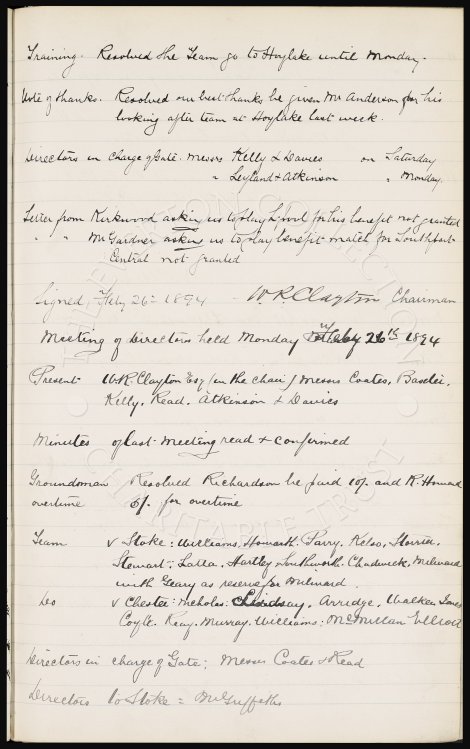 Training. Resolved the Team go to Hoylake until Monday.
Vote of thanks. Resolved our best thanks be given Mr Anderson for his
looking after team at Hoylake last week.
Directors in charge of Gate. Messrs Kelly & Davies on Saturday
" Leyland & Atkinson " Monday
Letter from Kirkwood asking us to play L'pool for his benefit not granted
" " Mr Gardner asking us to play benefit match for Southport
Central not granted
Signed, Feby 26th 1894 W.R. Clayton Chairman
Meeting of Directors held Monday Feby 26th 1894
Present W.R. Clayton Esq (in the chair) Messrs Coates, Baxter,
Kelly, Read, Atkinson & Davies
Minutes of last meeting read & confirmed
Groundsman Resolved Richardson be paid 10/- and R. Howard
overtime 6/- for overtime
Team v Stoke: Williams, Howarth, Parry, Kelso, Storrier,
Stewart, Latta, Hartley, Southworth, Chadwick, Milward
with Geary as reserve for Milward.
Do v Chester: Nicholas. Lindsay, Arridge, Walker, Jones
Coyle. Reay. Murray. Williams: McMillan Elliott
Directors in charge of Gate; Messrs Coates & Read
Directors to Stoke = Mr Griffiths
EVERTON COLLECTION
CHARITABLE TRUST